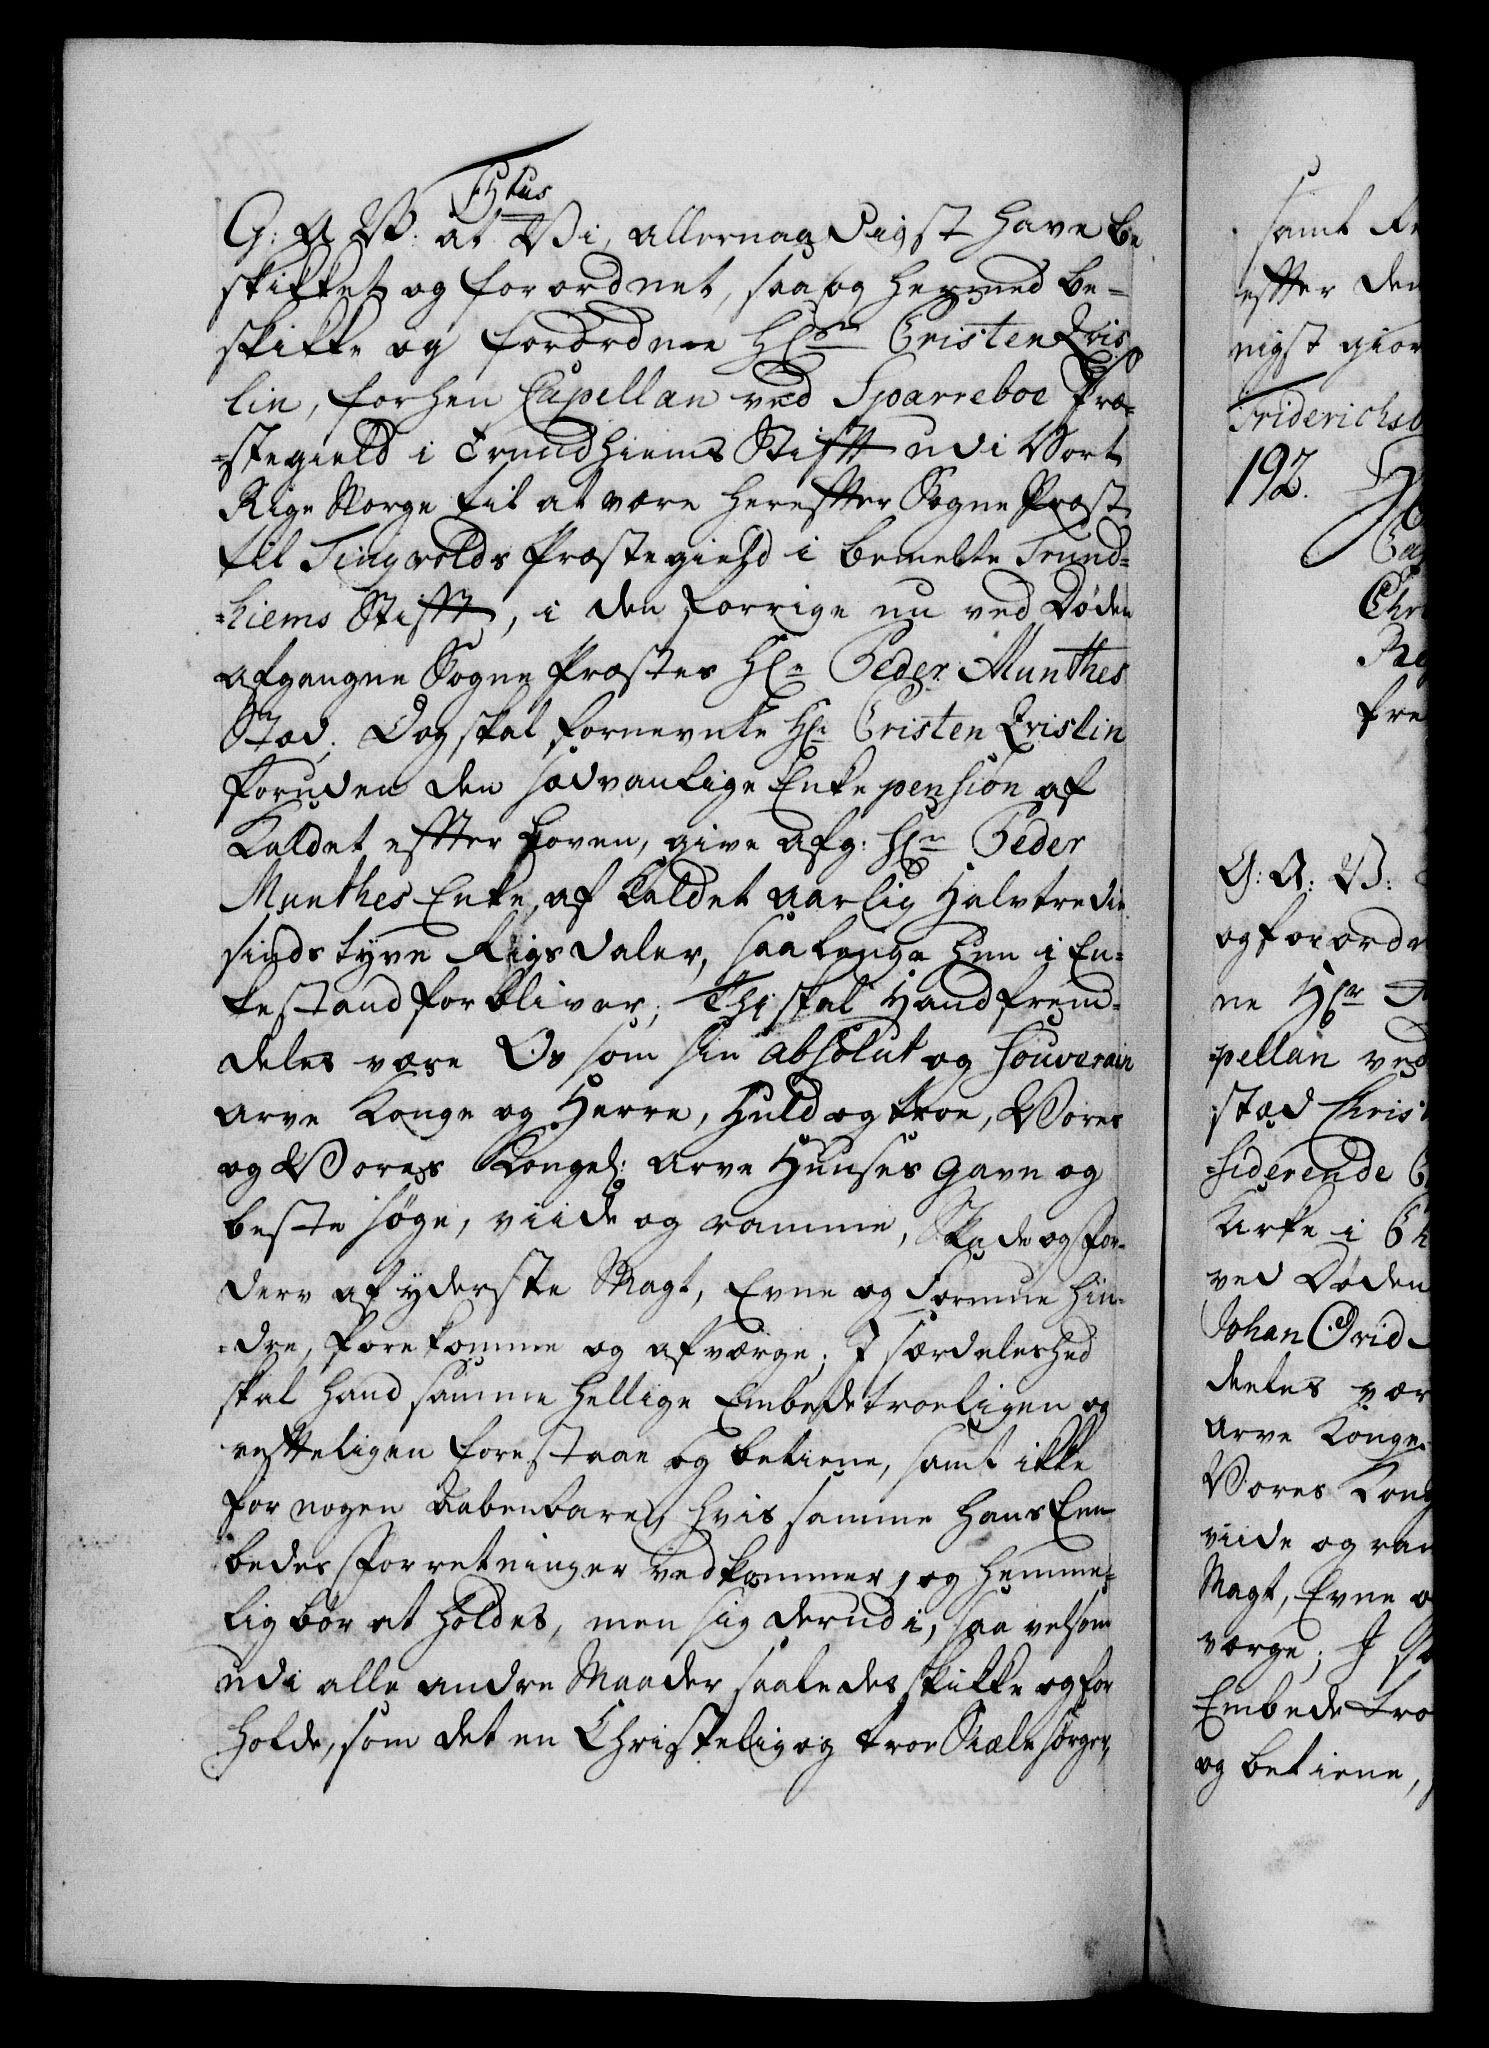 Tytus
G: A V: at Vi, allernaadigst have be
skikket og forordnet, saa og hermed be-
skikke og forordne Hr Cristen Qvis
lin, forhen Capellan ved Sparreboe Præ-
-stegield i Trundhiems Stifft udi Vort
Rige Norge til at være herefter Sogne Præst
til Tingvolds Præstegield i bemelte Trund-
-hiems Stifft, i den forrige nu ved Døden
afgangne Sogne Præstes Hr Peder Munthes
Stæd. Dog skal fornevnte Hr: Cristen Qvislin
foruden den sædvanlige Enke pension af
Kaldet effter Loven, give afg: Hr Peder
Munthes Enke, af Kaldet aarlig Halvtredie
sinds tyve Rigsdaler, saa længe hun i En-
kestand forbliver; Thi skal Hand frem-
deles være Os som sin absolut og souverain
arve Konge og Herre, Huld og troe, Vores
og Vores Kongel: arve Huuses gavn og
beste søge, viide og ramme, Skade og for-
derv af yderste Magt, Evne og Formue hin-
-dre, forekomme og afværge; I særdeleshed
skal hand samme hellige Embede troeligen og
retteligen forestaae og betiene, samt ikke
for nogen aabenbare, hvis samme hans Em-
bedes Forretninger vedkommer, og hemme-
lig bør at holdes, men sig derudi, saa vel som
udi alle andre Maader saaledes skikke og for
holde, som det en Christelig og troe Siæle sørger,
samt Re
effter den
nigst gior
Friderichsb
192.
Ca
Chri
Re
fre
G: A: V:
og forordn
ne Hr A
pellan ved
stæd Christ
-siderende C
Kirke i Ch
ved Døden
Johan Frid-
deeles vær
arve Konge
Vores Kong
viide og ram
Magt, Evne o
værge; I sæ
Embede tro
og betiene,